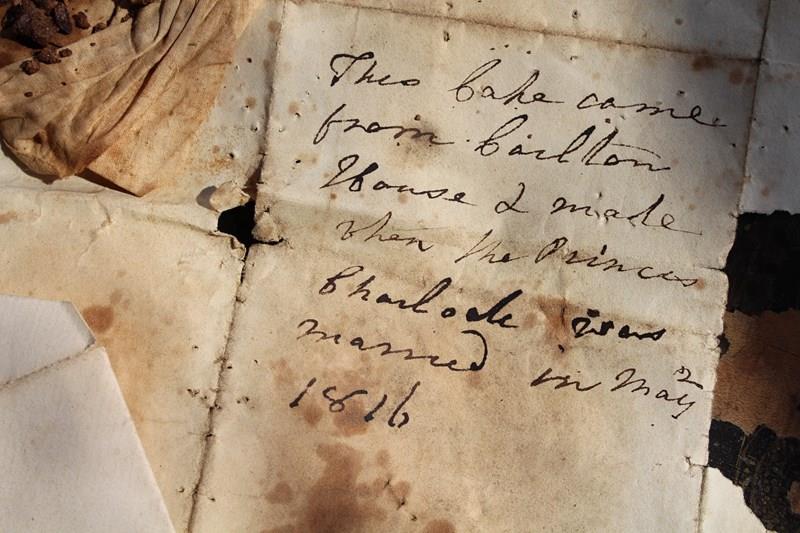 This Cake came
from Carlton
House & made
when the Princes
Charlotte was
married in May 2
1816